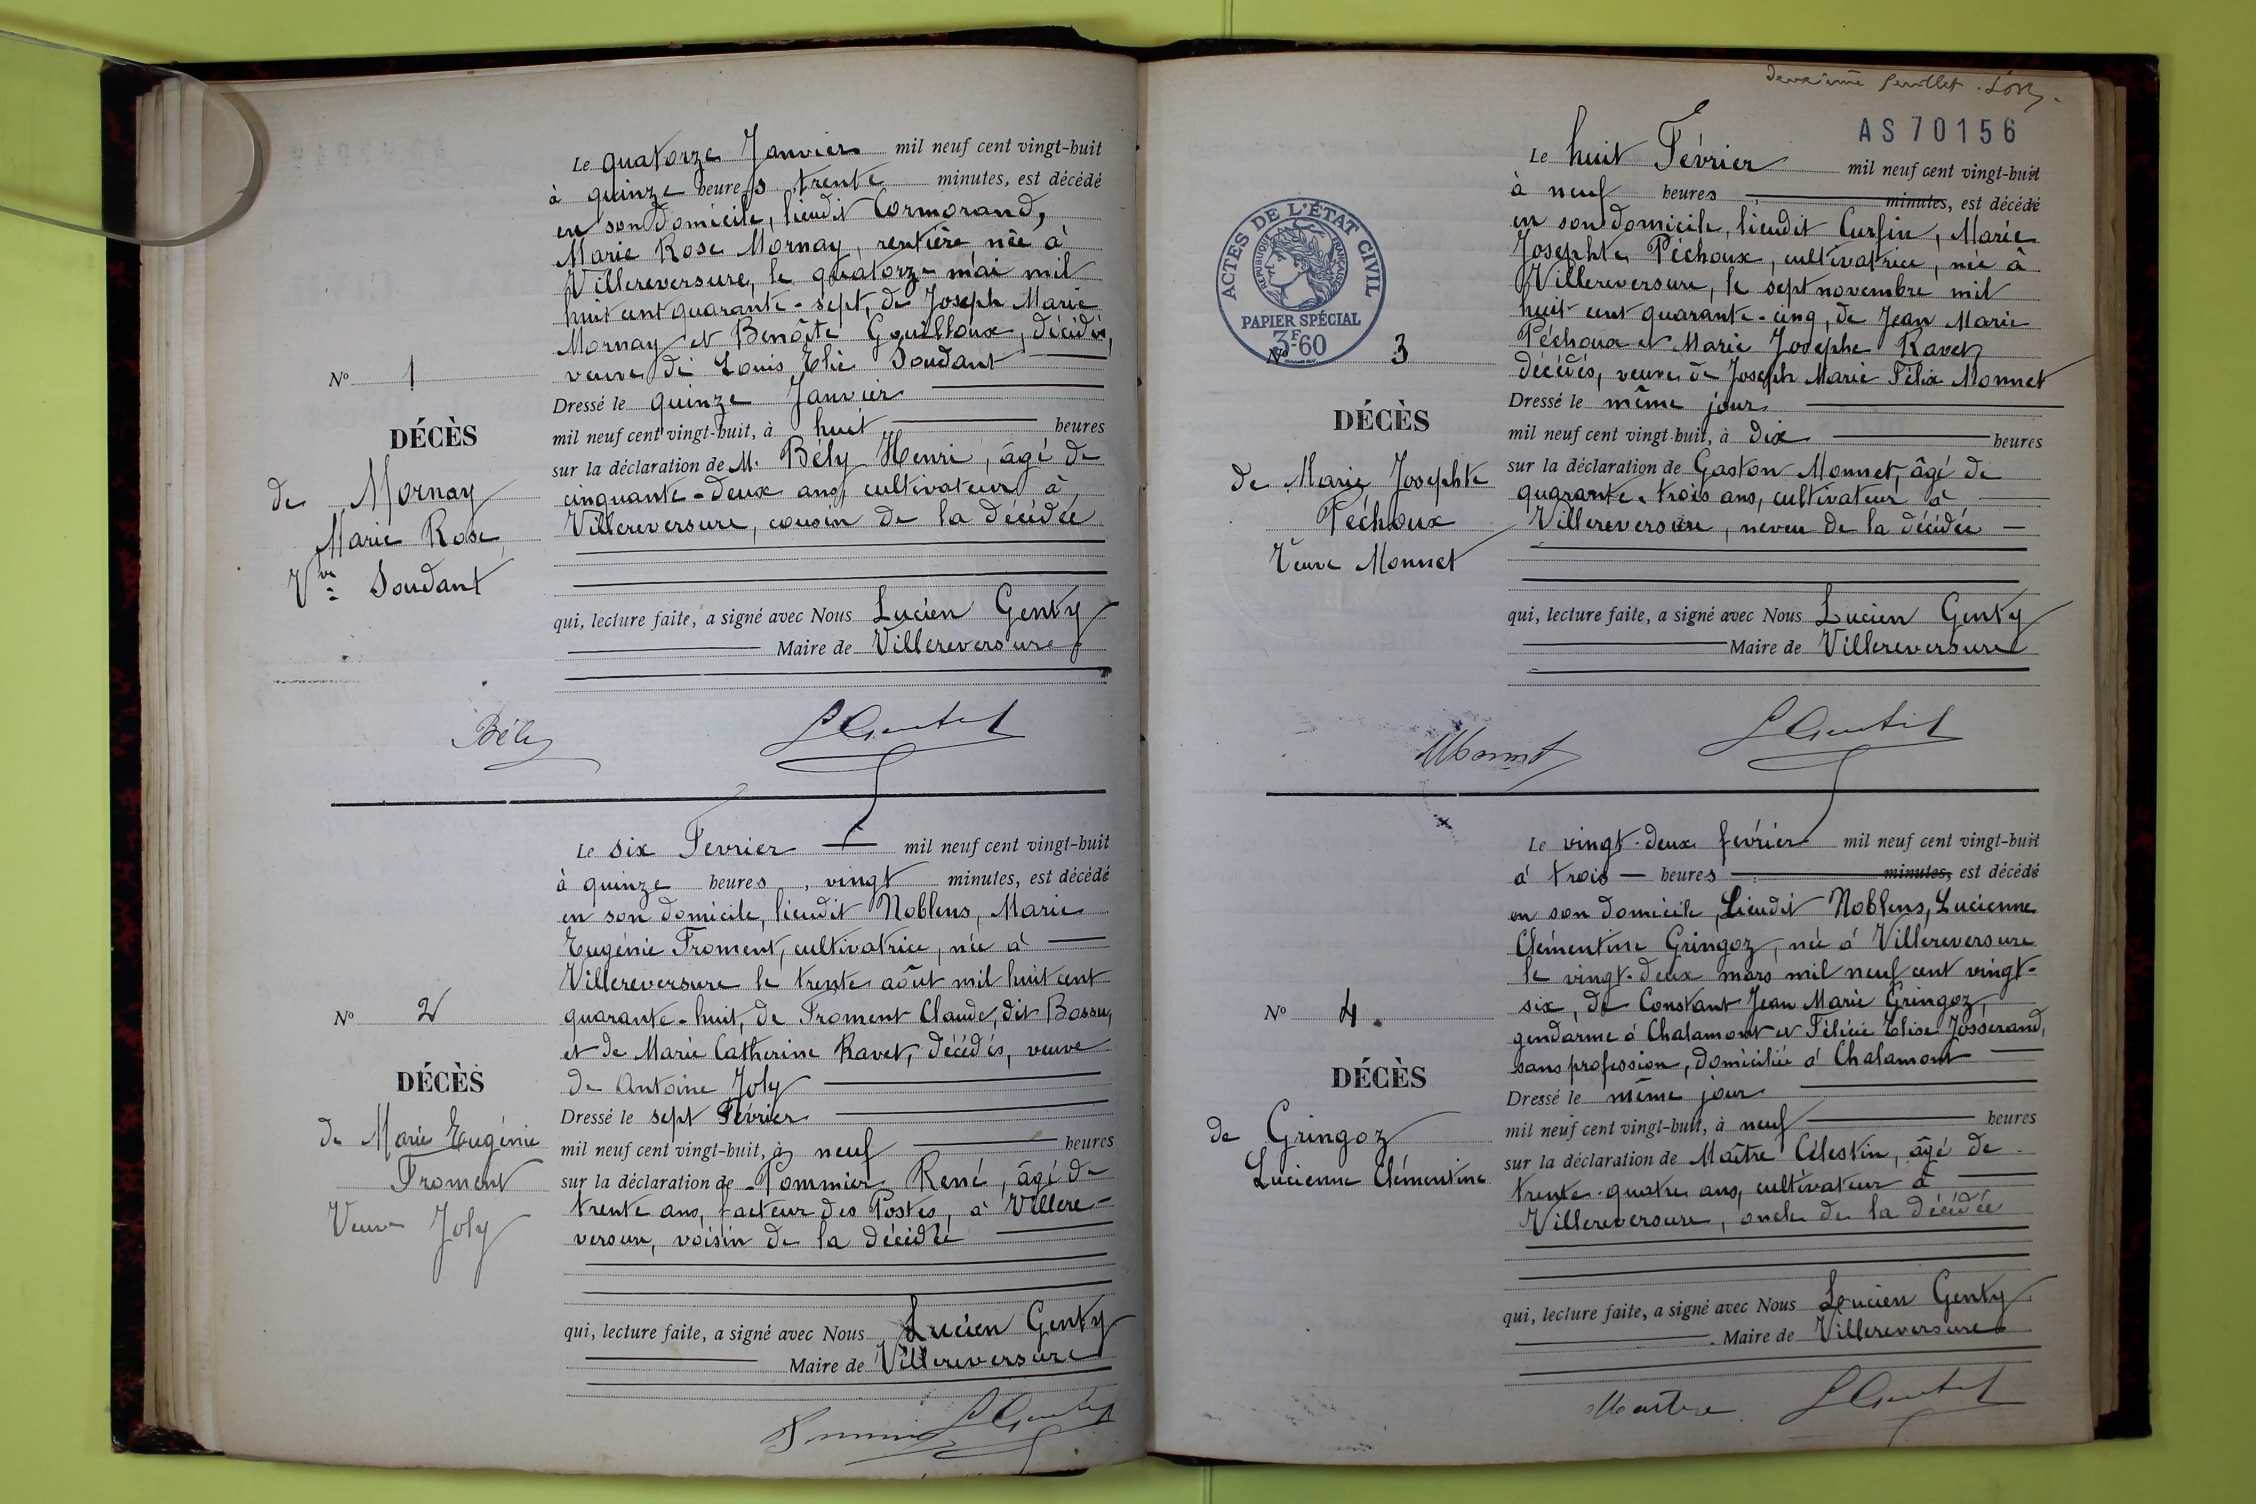 Le quatorze Janvier mil neuf cent vingt-huit
à quinze heures trente minutes, est décédé
en son domicile, lieudit Cormorand,
Marie Rose Mornay, rentière née à
Villereversure, le quatorze mai mil
huit cent quarante-sept, de Joseph Marie
Mornay et Benoîte Gouilloux, décédés,
veuve de Louis Elie Soudant
Nº 1
DÉCÈS
de Mornay
Marie Rose,
Vve Soudant
Dressé le quinze Janvier
mil neuf cent vingt-huit, à huit heures
sur la déclaration de M. Bély Henri, âgé de
cinquante-deux ans, cultivateur à
Villereversure, cousin de la décédée
qui, lecture faite, a signé avec Nous Lucien Genty
Maire de Villereversure
Bély
Le six Février mil neuf cent vingt-huit
à quinze heures, vingt minutes, est décédé
en son domicile, lieudit Noblens, Marie
Eugénie Froment, cultivatrice, née à
Villereversure le trente août mil huit cent
quarante-huit, de Froment Claude, dit Bossu,
et de Marie Catherine Ravet, décédés, veuve
de Antoine Joly
Nº 2
DÉCÈS
de Marie Eugénie
Froment
Veuve Joly
Dressé le sept Février
mil neuf cent vingt-huit, à neuf heures
sur la déclaration de Pommier René, âgé de
trente ans, facteur des Postes, à Villere-
versure, voisin de la décédée
qui, lecture faite, a signé avec Nous Lucien Genty
Maire de Villereversure
Deuxième feuillet.
AS70156
Le huit Février mil neuf cent vingt-huit
à neuf heures minutes, est décédé
en son domicile, lieudit Curfin, Marie
Josephte Péchoux, cultivatrice, née à
Villereversure, le sept novembre mil
huit cent quarante-cinq, de Jean Marie
Péchoux et Marie Josephe Ravet
décédés, veuve de Joseph Marie Félix Monnet
ACTES DE L'ÉTAT CIVIL
REPUBLIQUE FRANÇAISE
PAPIER SPÉCIAL
3F60
Nº 3
DÉCÈS
de Marie Josephte
Péchoux
Veuve Monnet
Dressé le même jour
mil neuf cent vingt-huit, à dix heures
sur la déclaration de Gaston Monnet, âgé de
quarante-trois ans, cultivateur à
Villereversure, neveu de la décédée
qui, lecture faite, a signé avec Nous Lucien Genty
Maire de Villereversure
Le vingt-deux février mil neuf cent vingt-huit
à trois heures minutes, est décédé
en son domicile, Lieudit Noblens, Lucienne
Clémentine Gringoz, née à Villereversure
le vingt-deux mars mil neuf cent vingt-
six, de Constant Jean Marie Gringoz,
gendarme à Chalamont et Félicie Elise Josserand,
sans profession, domiciliée à Chalamont
Nº 4.
DÉCÈS
de Gringoz
Lucienne Clémentine
Dressé le même jour
mil neuf cent vingt-huit, à neuf heures
sur la déclaration de Maître Célestin, âgé de
trente-quatre ans, cultivateur à
Villereversure, oncle de la décédée
qui, lecture faite, a signé avec Nous Lucien Genty
Maire de Villereversure
Maître